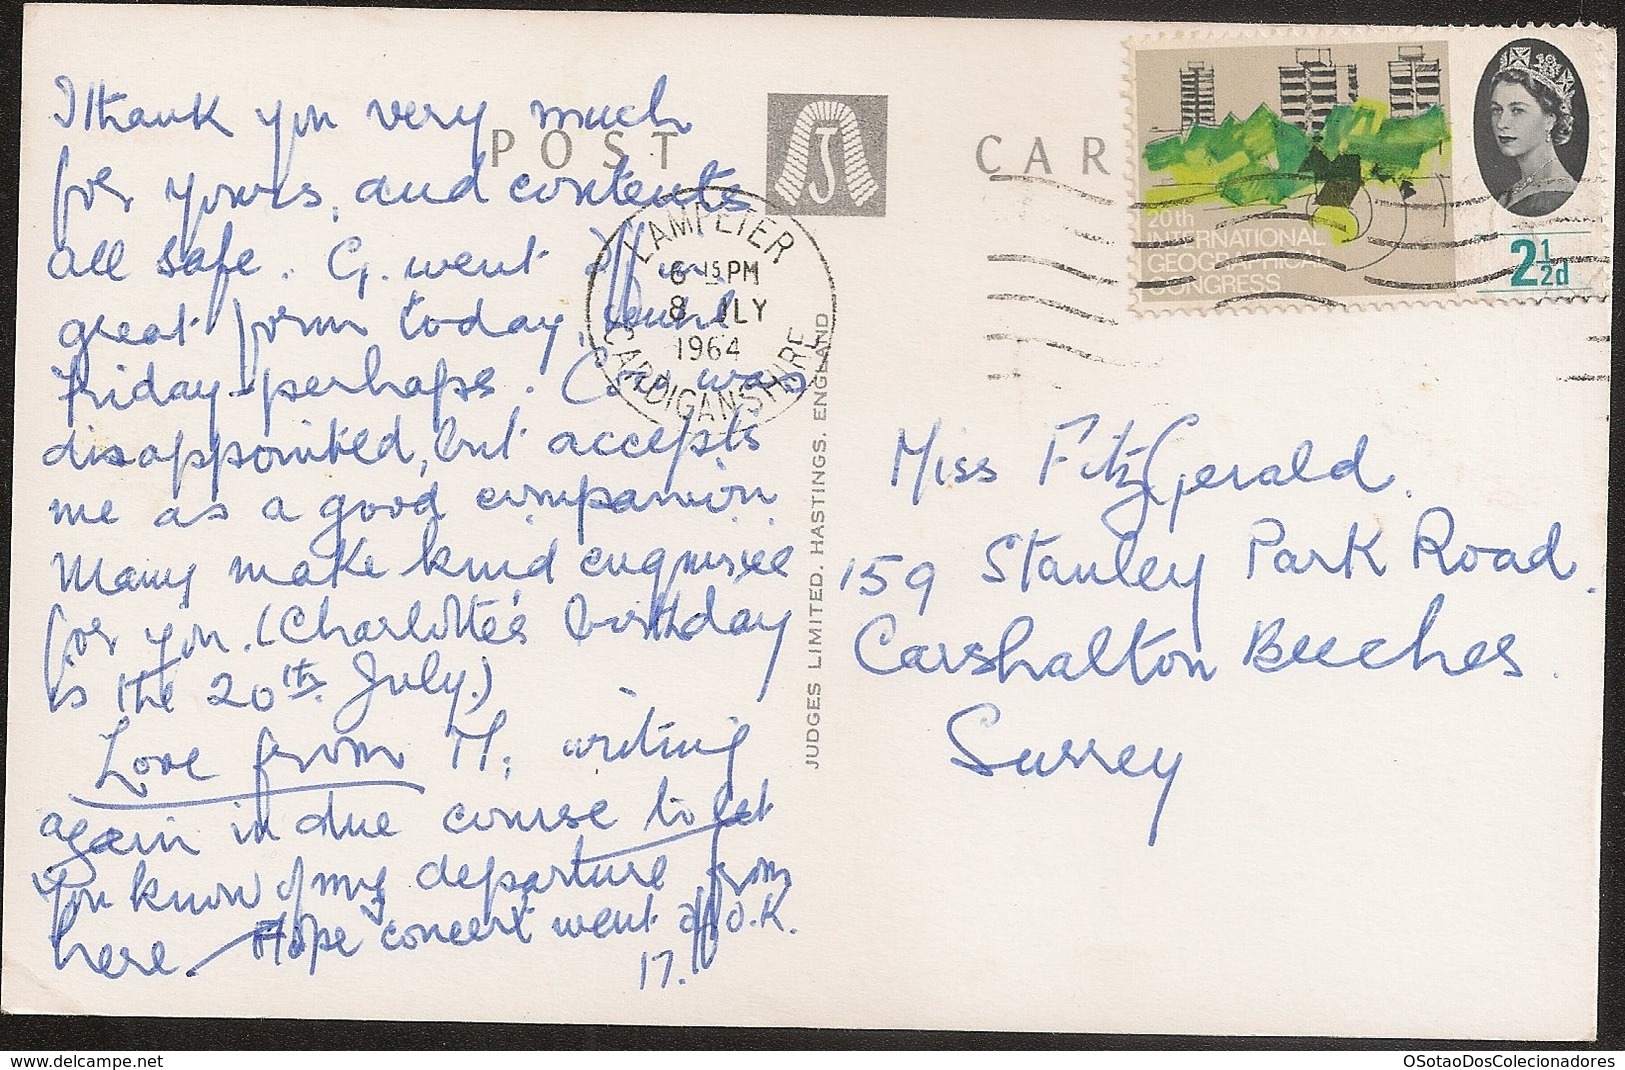 I thank you very much
for yours, and contents
all safe. G. went off in
great form today, until
Friday perhaps. was
disappointed, but accepts
me as a good companion.
Many make kind enquiries
for you. (Charlotte's birthday
is the 20th July.)
Love from M, writing
again in due course to let
you know of my departure from
here. Hope concert went off O.K.
17.
POST CAR
J
LAMPETER
6 15 PM
8 JLY
1964
CARDIGANSHIRE
JUDGES LIMITED, HASTINGS, ENGLAND
20th
INTERNATIONAL
GEOGRAPHICAL
CONGRESS
2½d
Miss FitzGerald.
159 Stanley Park Road.
Carshalton Beeches.
Surrey
delcampe.net
OSotaoDosColecionadores